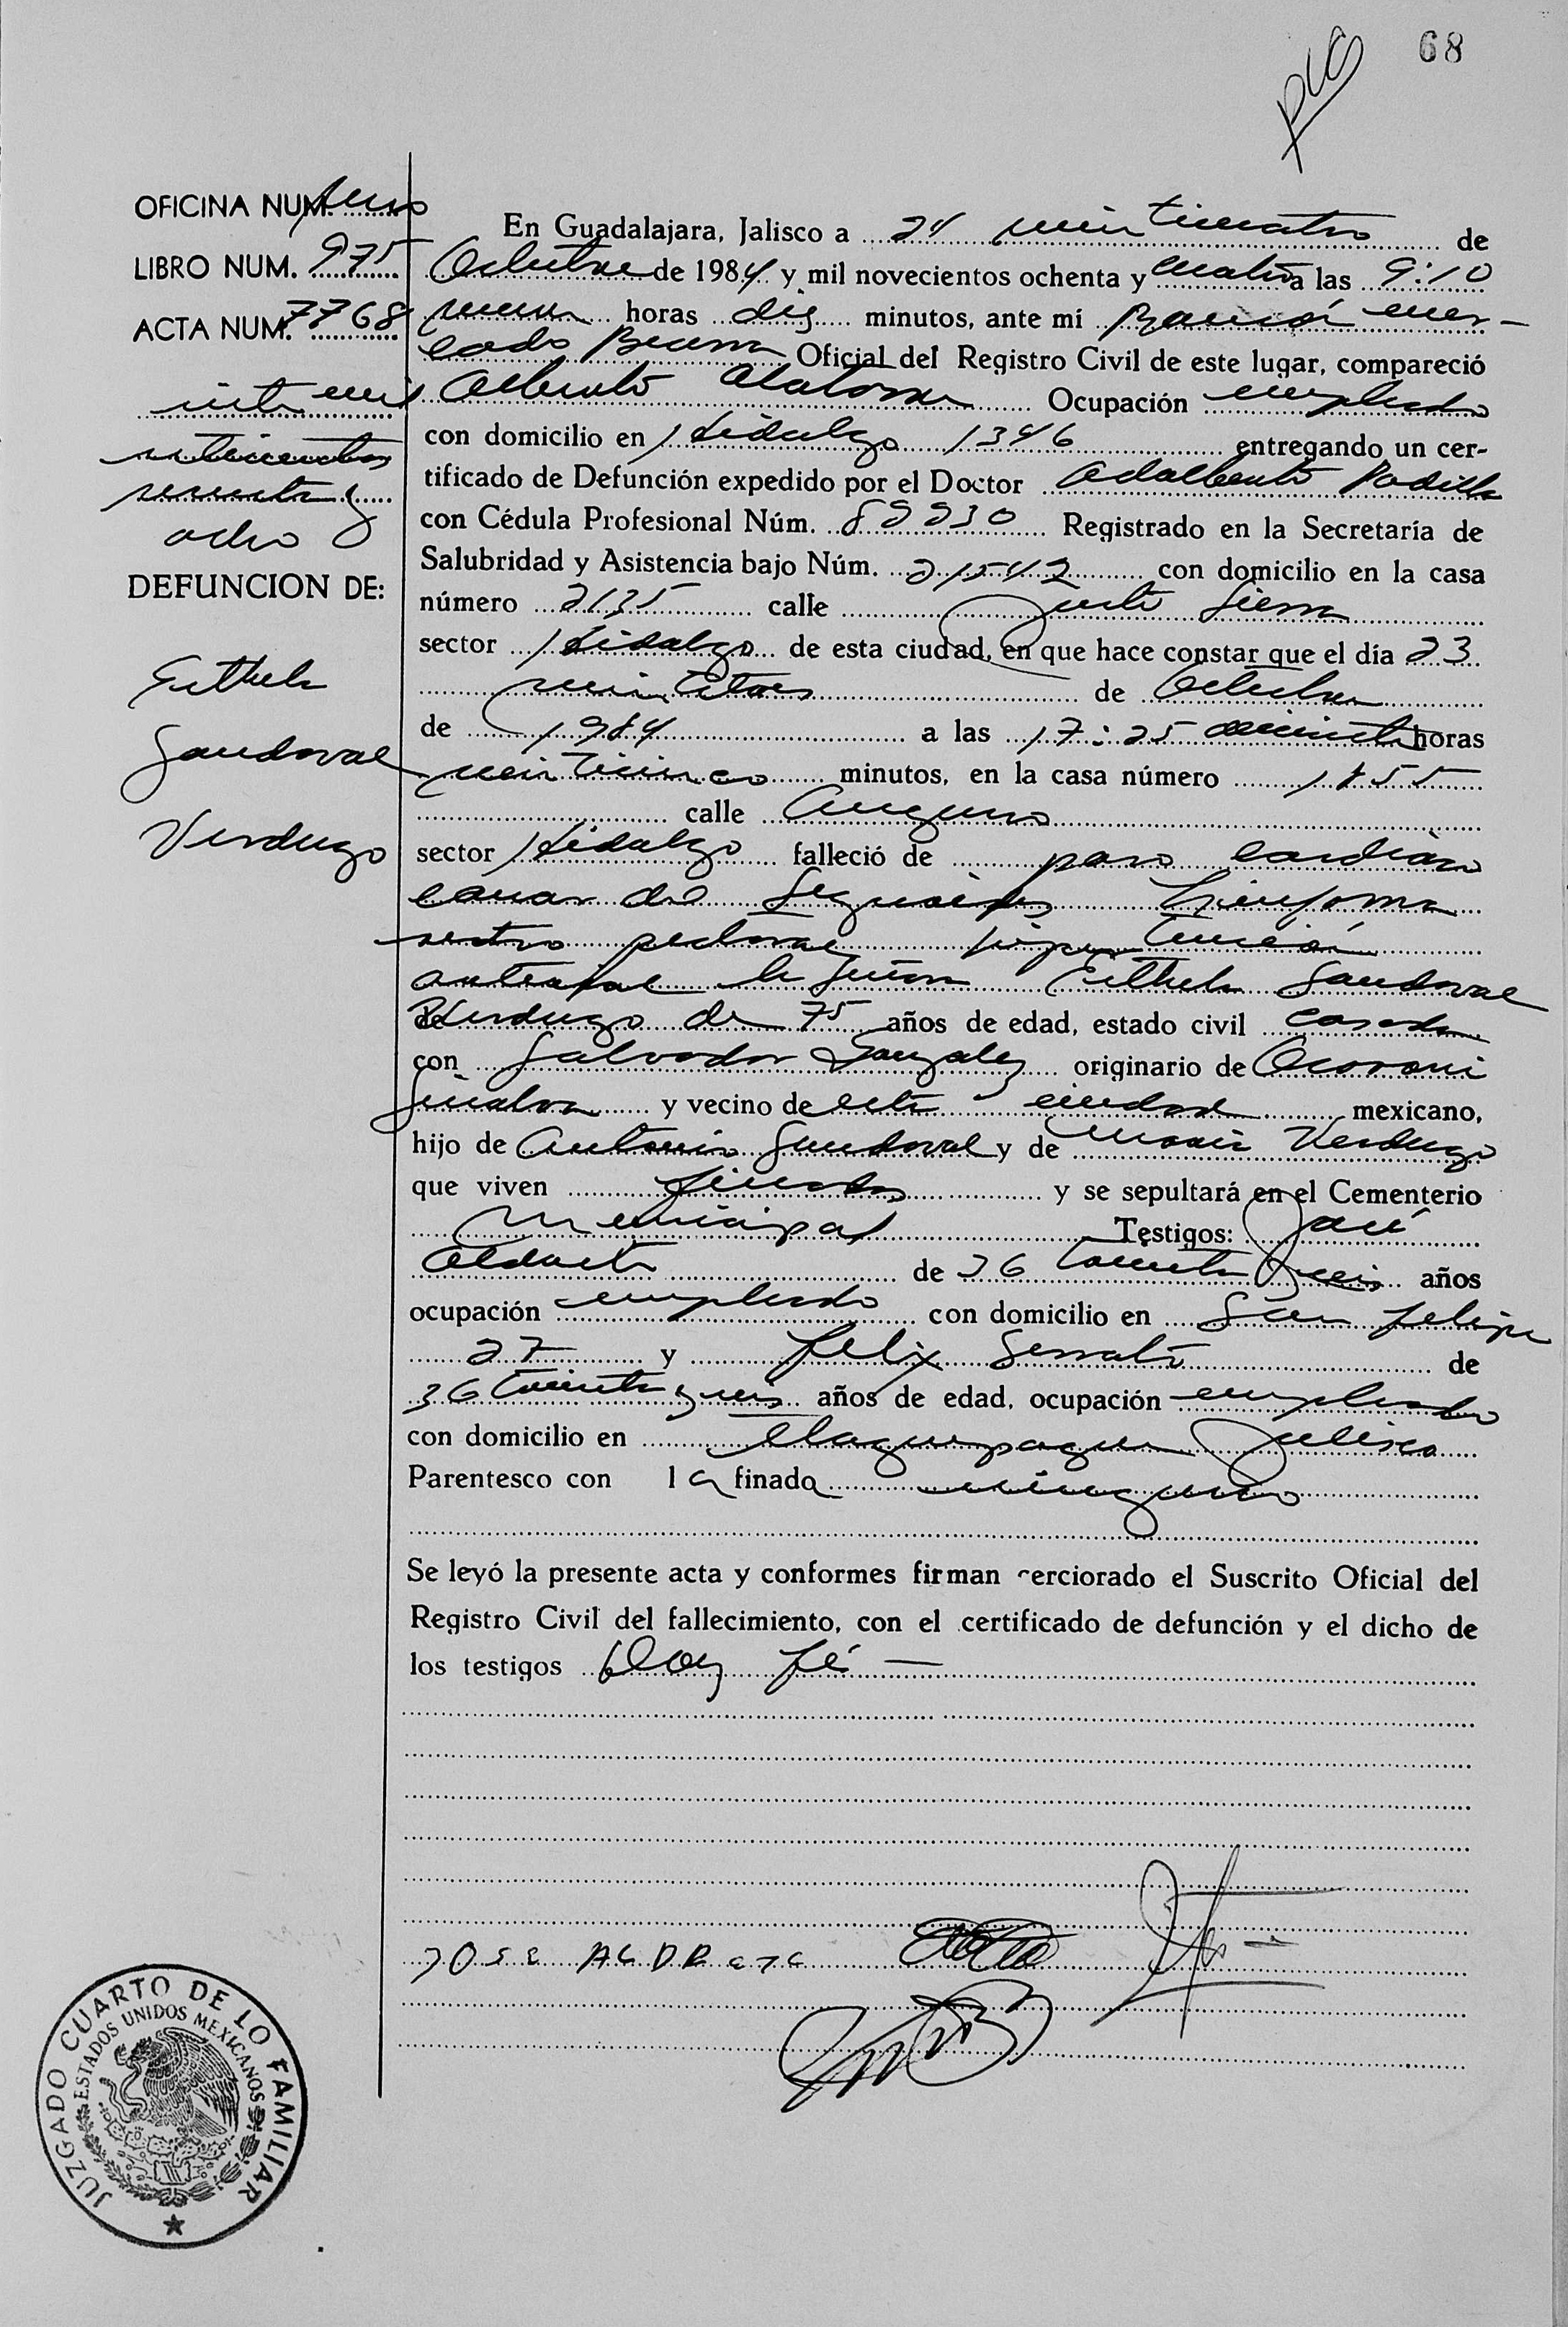 68
OFICINA NUM. uno
LIBRO NUM. 975
ACTA NUM. 7768
siete mil
setecientos
sesenta y
ocho
DEFUNCION DE:
Esthela
Sandoval
Verdugo
En Guadalajara, Jalisco a 24 veinticuatro de
Octubre de 1984 y mil novecientos ochenta y cuatro a las 9:10
nueve horas diez minutos, ante mi Ramón Mer-
cado Becerra Oficial del Registro Civil de este lugar, compareció
Alberto Alatorre Ocupación empleado
con domicilio en Hidalgo 1346 entregando un cer-
tificado de Defunción expedido por el Doctor Adalberto Padilla
con Cédula Profesional Núm. Registrado en la Secretaría de
Salubridad y Asistencia bajo Núm. 21542 con domicilio en la casa
número 2135 calle Justo Sierra
sector Hidalgo de esta ciudad, en que hace constar que el día 23
veintitres de Octubre
de 1984 a las 17:25 horas
veinticinco minutos, en la casa número 1855
calle
sector Hidalgo falleció de paro cardiaco
Linfoma
retro hipertensión
arterial la señora Esthela Sandoval
Verdugo de 75 años de edad, estado civil casada
con Salvador Gonzalez originario de Ocoroni
Sinaloa y vecino de esta ciudad mexicano,
hijo de Antonio Sandoval y de Maria Verdugo
que viven finados y se sepultará en el Cementerio
Municipal Testigos: José
Aldrete de 36 treinta y seis años
ocupación empleado con domicilio en San Felipe
27 y Felix Serrato de
36 treinta y seis años de edad, ocupación empleado
con domicilio en Tlaquepaque Jalisco
Parentesco con la finada ninguno
Se leyó la presente acta y conformes firman cerciorado el Suscrito Oficial del
Registro Civil del fallecimiento, con el certificado de defunción y el dicho de
los testigos Doy fé —
JOSE ALDRETE
JUZGADO CUARTO DE LO FAMILIAR
ESTADOS UNIDOS MEXICANOS